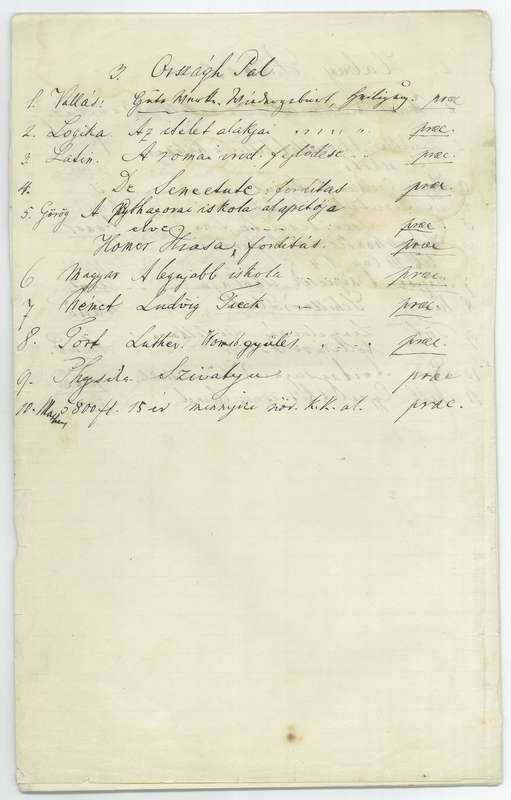 3. Országh Pal
1. Vallás: Gute Werke. Wiedergeburt, Heiligung. præc
2. Logika Az itélet alakjai " " " " " præc.
3. Latin. A romai irod: fejlödése " " præc.
4. De Senectute forditas præc.
5. Görög A Pythagorai iskola alapitója
elve præc.
Homer Iliasa, forditás. præc
6 Magyar A legujabb iskola præc.
7 Német Ludvig Tieck " præc.
8. Tört Luther. gyülés præc.
9. Physika Szivattyu præc
10. Math 3,800 ft. 15 év mennyire növ. k.k. al. præc.